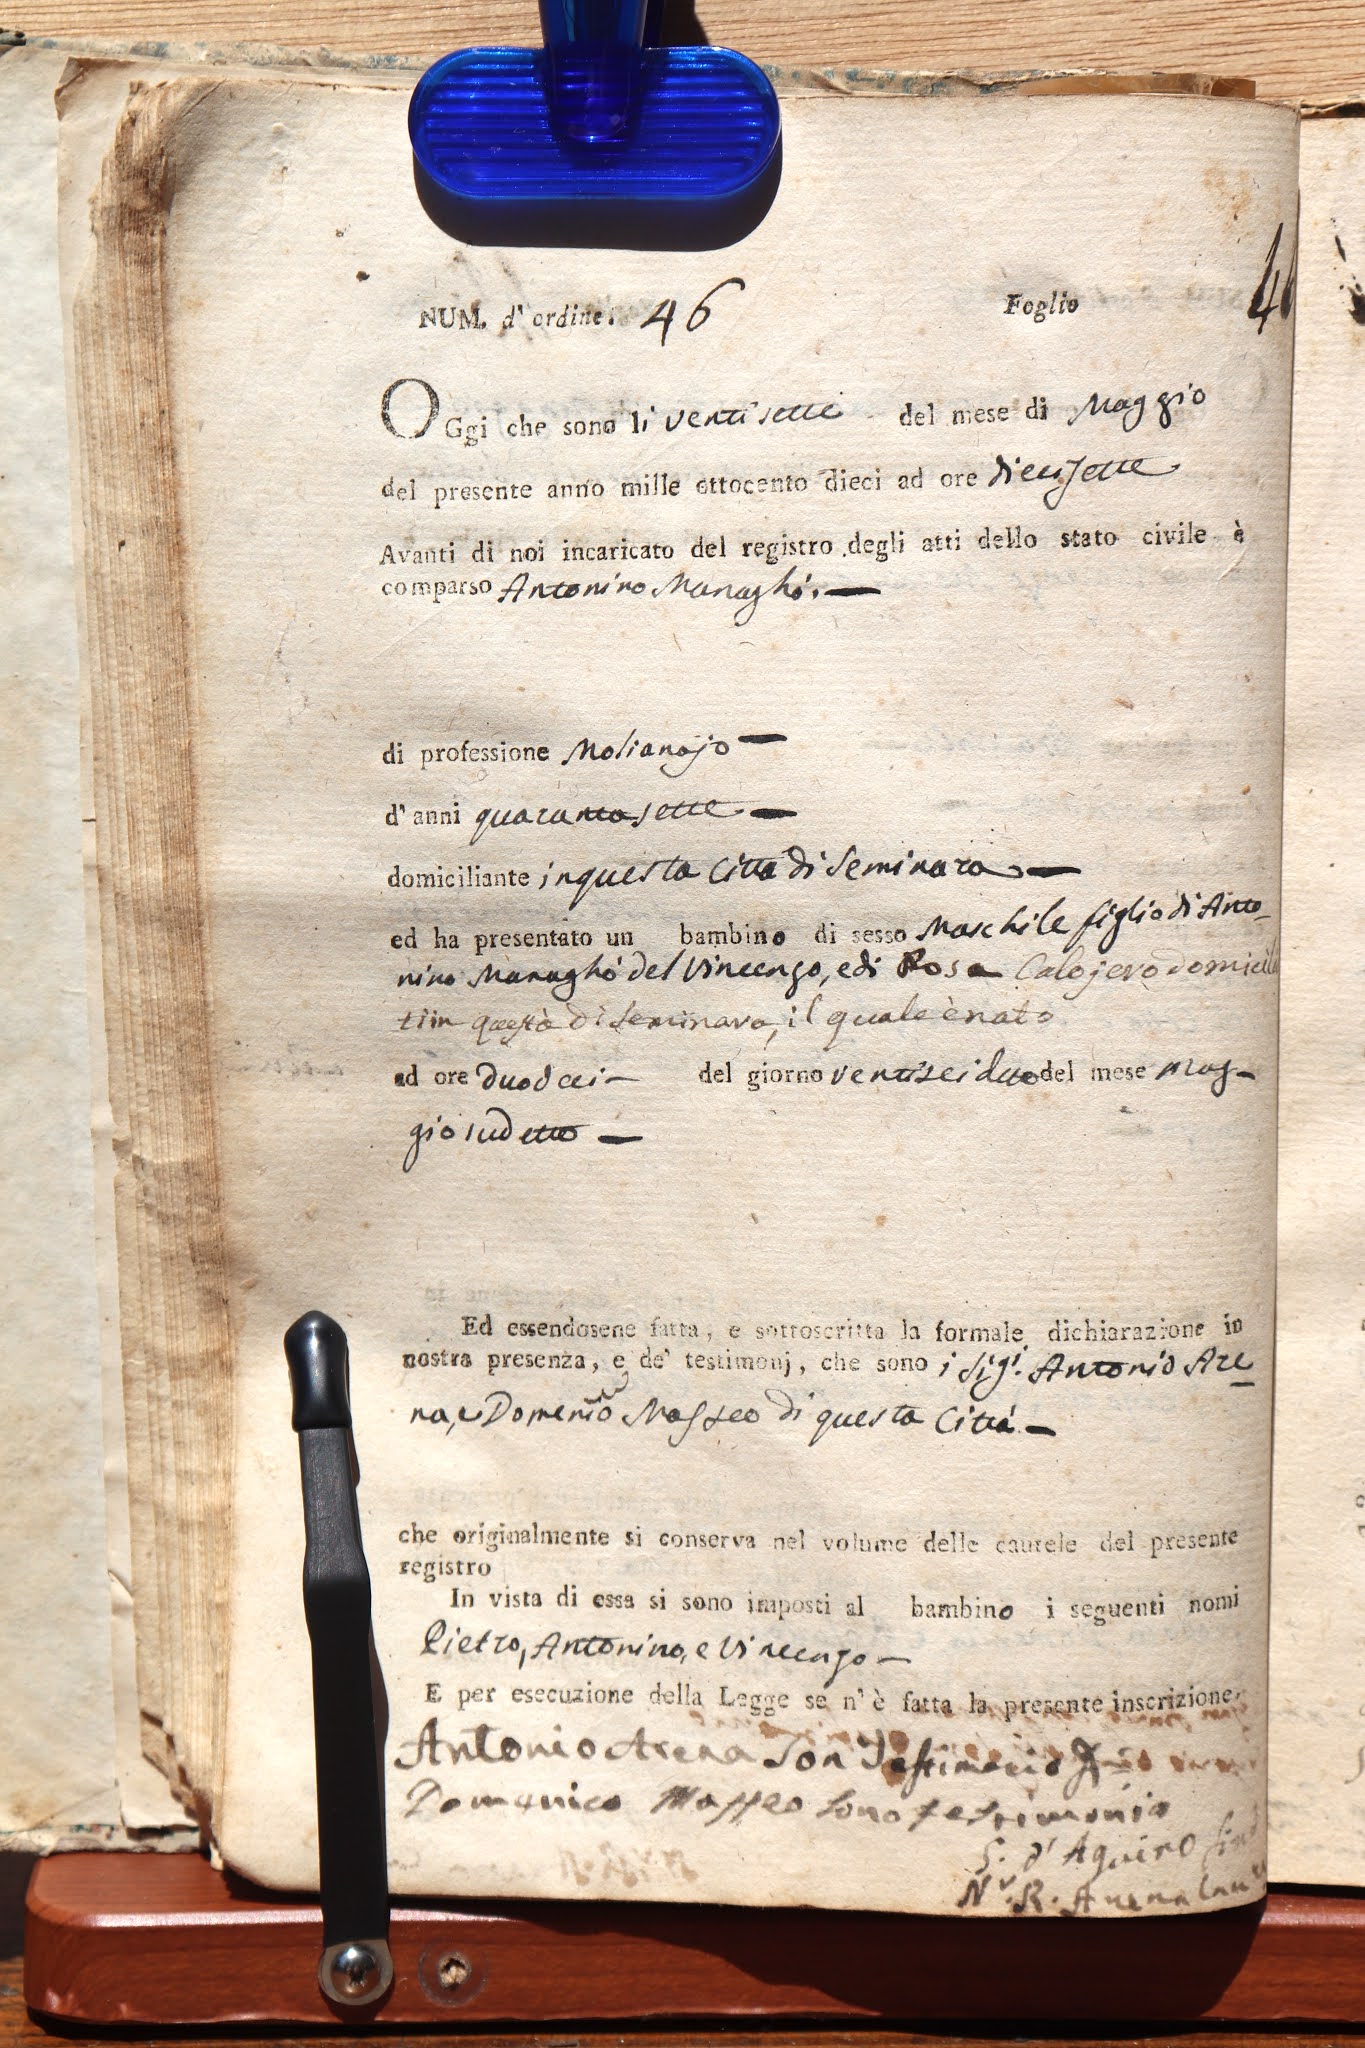 NUM. d' ordine. 46 Foglio 46
OGgi che sono li ventisette del mese di Maggio
del presente anno mille ottocento dieci ad ore diecisette
Avanti di noi incaricato del registro degli atti dello stato civile è
comparso Antonino Managhò.
di professione Molianajo
d' anni quarantasette
domiciliante in questa Città di Seminara
ed ha presentato un bambino di sesso Maschile figlio di Anto-
nino Managhò del Vincenzo, e di Rosa Calojero domicilia
ti in questa di Seminara, il quale è nato
ad ore duodeci del giorno ventisei del mese Mag-
gio sudetto
Ed essendosene fatta, e sottoscritta la formale dichiarazione in
nostra presenza, e de' testimonj, che sono i Sigi. Antonio Are
na, e Domenico Maffeo di questa Città
che originalmente si conserva nel volume delle cautele del presente
registro
In vista di essa si sono imposti al bambino i seguenti nomi
Pietro, Antonino, e Vincenzo
E per esecuzione della Legge se n' è fatta la presente inscrizione.
Antonio Arena Son Testimonio
Domenico Maffeo sono testimonio
G. d' Aquino
N. R. Avena